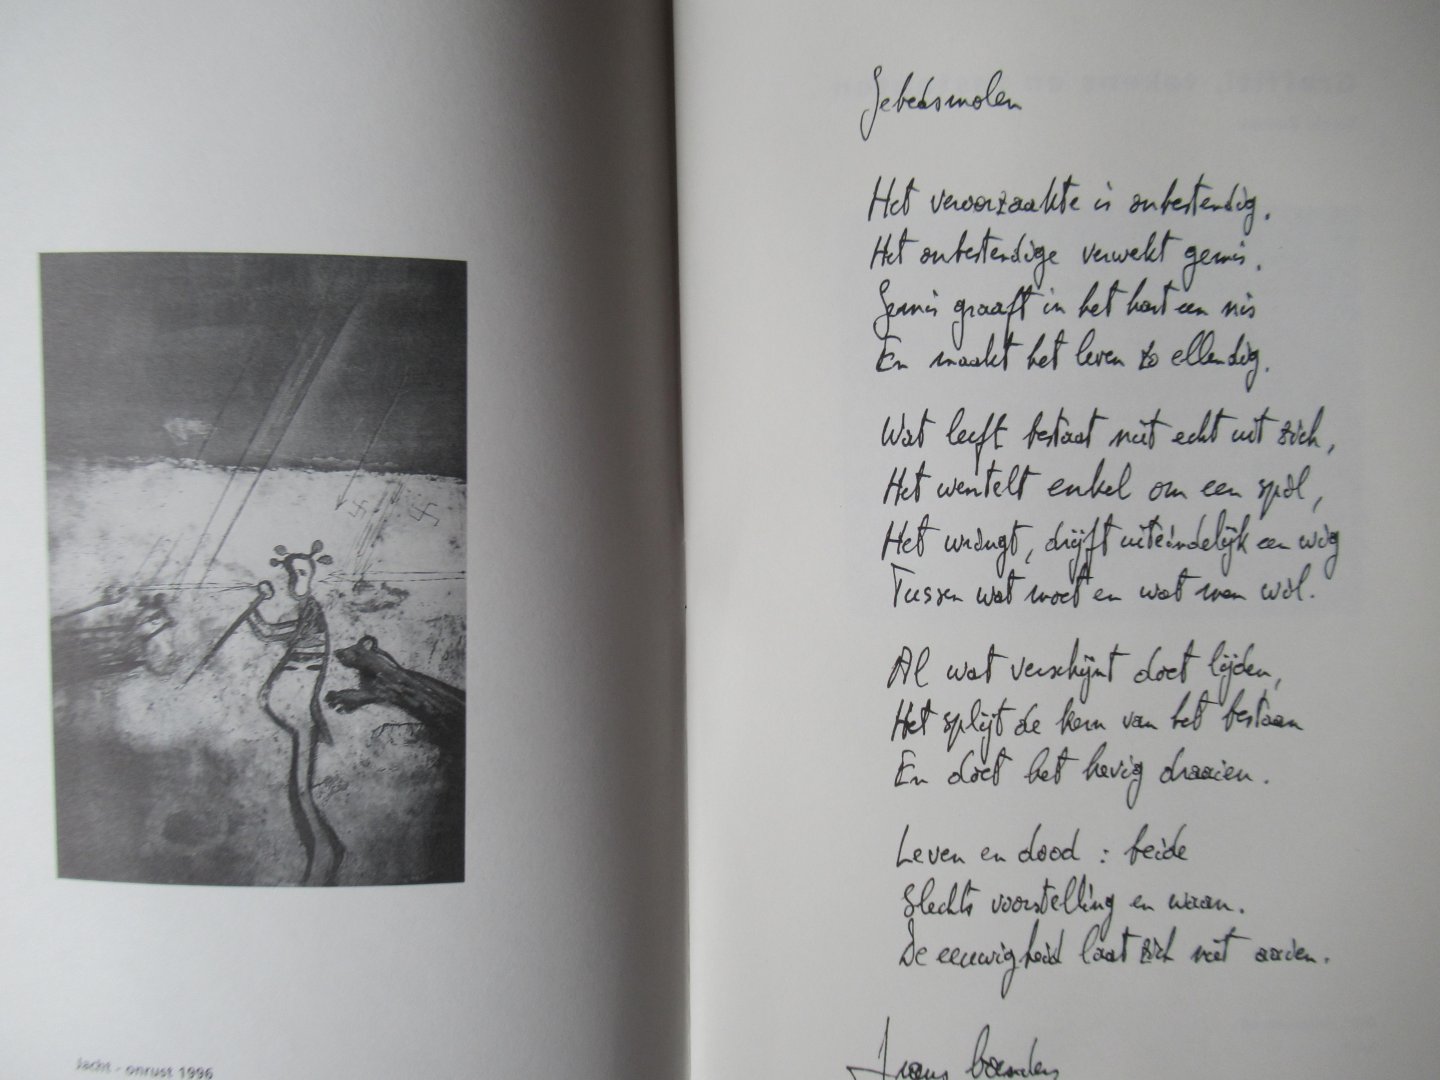 Jacht - onrust 1996
Gebedsmolen
Het veroorzaakte is onbestendig.
Het onbestendige verwekt gemis.
Gemis graaft in het hart een nis
En maakt het leven zo ellendig.
Wat leeft bestaat niet echt uit zich,
Het wentelt enkel om een spil,
Het wringt, drijft uiteindelijk een wig
Tussen wat moet en wat men wil.
Al wat verschijnt doet lijden,
Het splijt de kern van het bestaan
En doet het hevig draaien.
Leven en dood : beide
Slechts voorstelling en waan.
De eeuwigheid laat zich niet aaien.
Frans